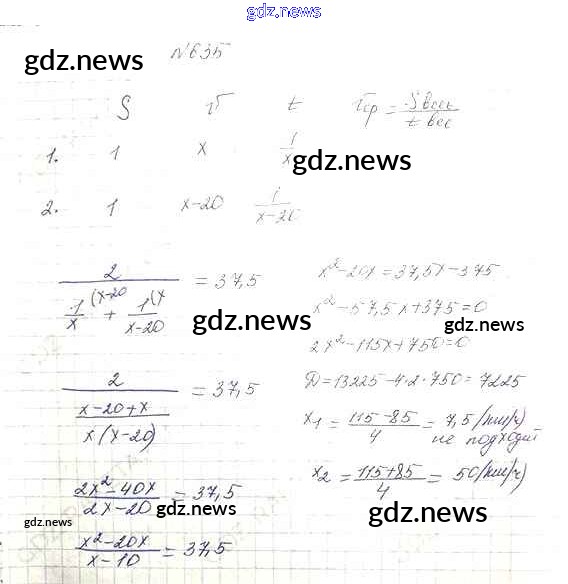 gdz.news
№635
gdz.news
S v t vср = Sвсё / t всё
1. 1 x 1/x
gdz.news
2. 1 x-20 1/(x-20)
2 / (1/x (x-20 + 1/(x-20) (x) = 37,5
gdz.news
2 / ((x-20+x) / (x(x-20))) = 37,5
(2x²-40x) / (2x-20) = 37,5
gdz.news
gdz.news
(x²-20x) / (x-10) = 37,5
x²-20x=37,5x-375
x²-57,5x+375=0
gdz.news
2x²-115x+750=0
D=13225-4·2·750=7225
x₁ = (115-85) / 4 = 7,5 (км/ч)
не подходит
x₂ = (115+85) / 4 = 50 (км/ч)
gdz.news